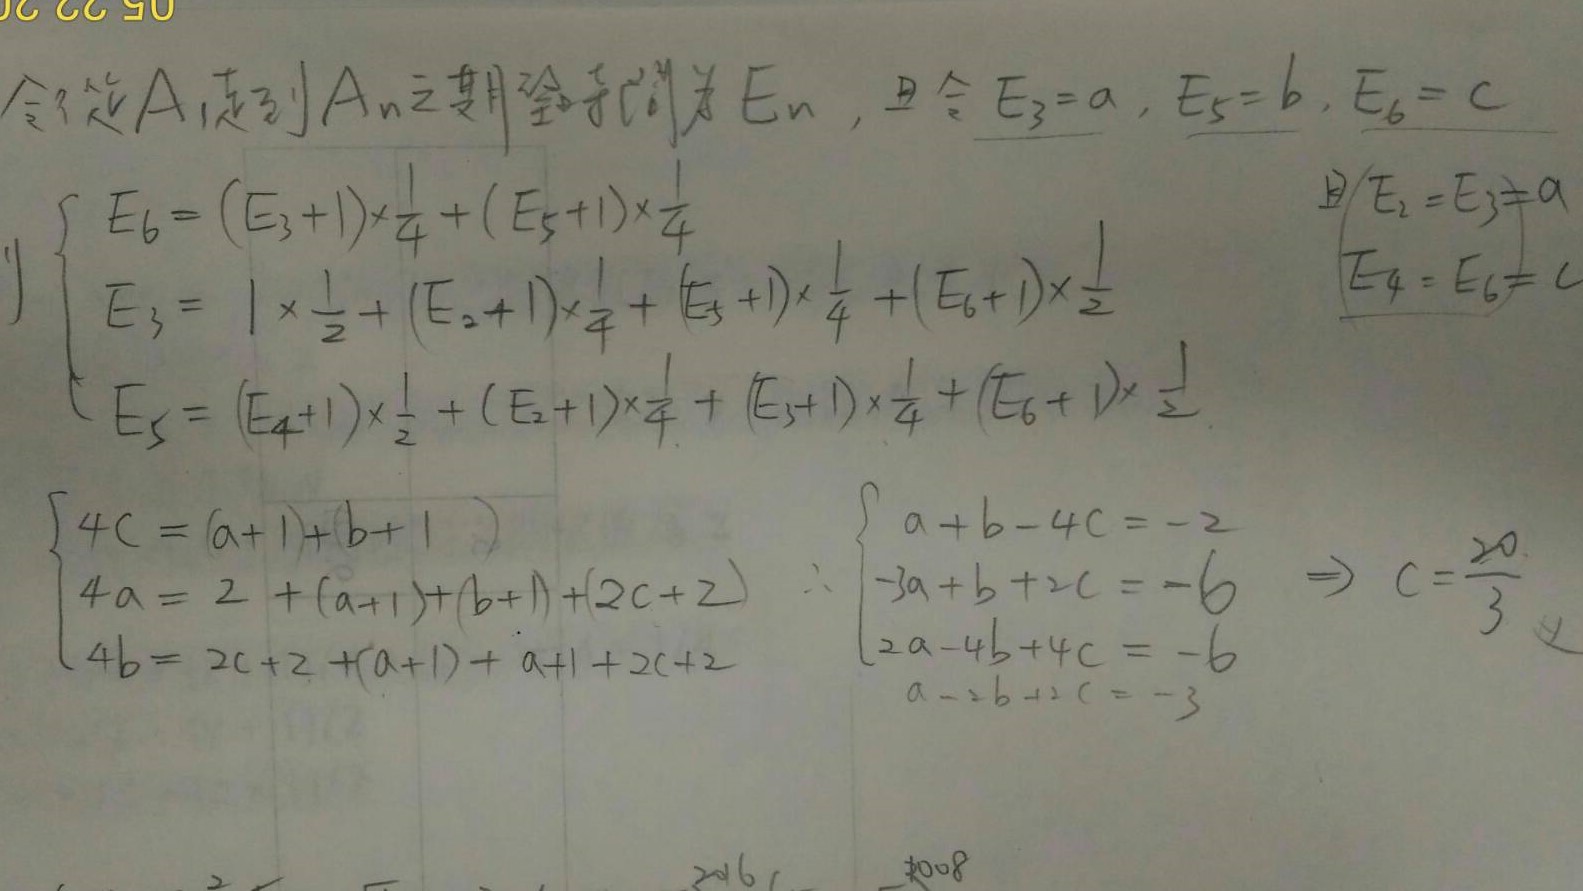 05 22 20
令從A₁走到Aₙ之期望時間為Eₙ, 且令 E₃=a, E₅=b, E₆=c
且 E₂=E₃=a
E₄=E₆=c
則
E₆=(E₃+1)×1/4+(E₅+1)×1/4
E₃= 1×1/2+(E₂+1)×1/4+(E₅+1)×1/4+(E₆+1)×1/2
E₅=(E₄+1)×1/2+(E₂+1)×1/4+(E₃+1)×1/4+(E₆+1)×1/2
4c=(a+1)+(b+1)
4a=2+(a+1)+(b+1)+(2c+2)
4b=2c+2+(a+1)+a+1+2c+2
∴ a+b-4c=-2
-3a+b+2c=-6
2a-4b+4c=-6
a-2b+2c=-3
⇒ c=20/3
2016
1008